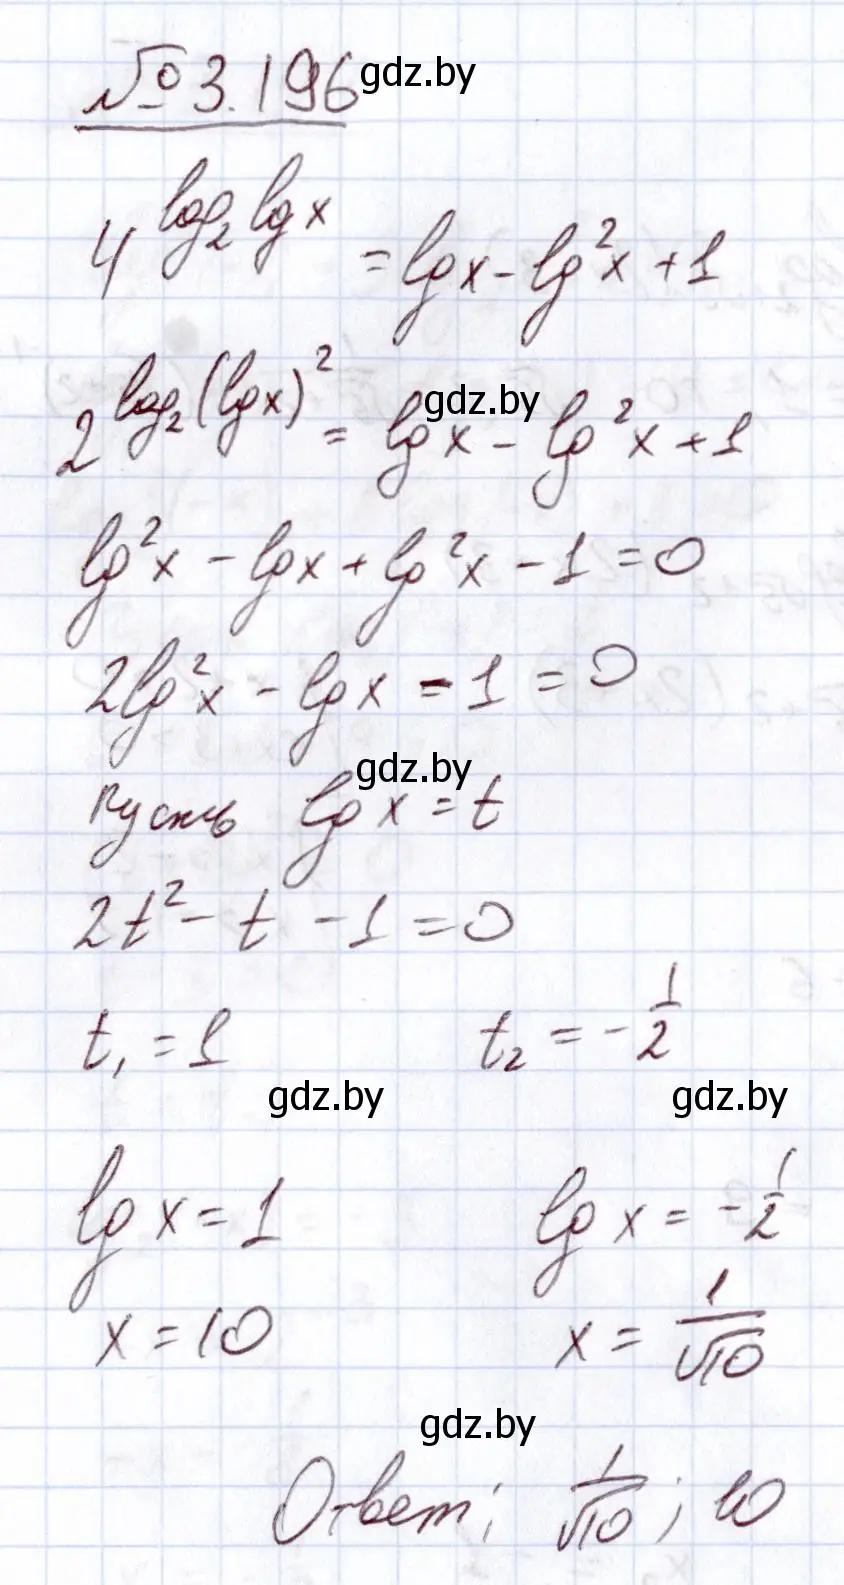 № 3.196 gdz.by
4^{log₂ lg x} = lg x - lg²x + 1
2^{log₂(lg x)²} = lg x - lg²x + 1 gdz.by
lg²x - lg x + lg²x - 1 = 0
2lg²x - lg x - 1 = 0
gdz.by
Пусть lg x = t
2t² - t - 1 = 0
t₁ = 1 t₂ = -1/2
gdz.by gdz.by
lg x = 1 lg x = -1/2
x = 10 x = 1/√10
gdz.by
Ответ: 1/√10; 10